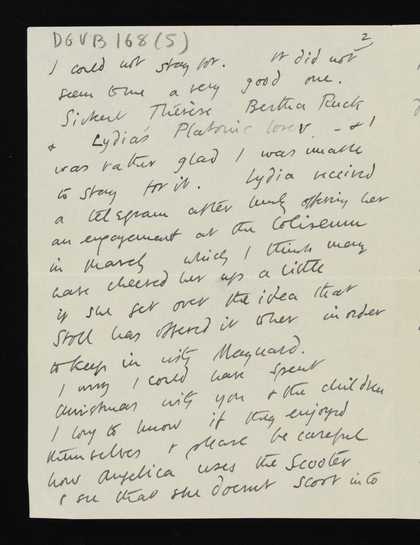 DGVB 168 (5)
2
I could not stay for. It did not
seem to me a very good one.
Sickert Thérèse Bertha Ruck
& Lydia's Platonic lover. – & I
was rather glad I was unable
to stay for it. Lydia received
a telegram after lunch offering her
an engagement at the Coliseum
in March which I think may
have cheered her up a little
if she get over the idea that
Stoll has offered it to her in order
to keep in with Maynard.
I wish I could have spent
Christmas with you & the children
I long to know if they enjoyed
themselves & please be careful
how Angelica uses the Scooter
& see that she doesnt scoot into